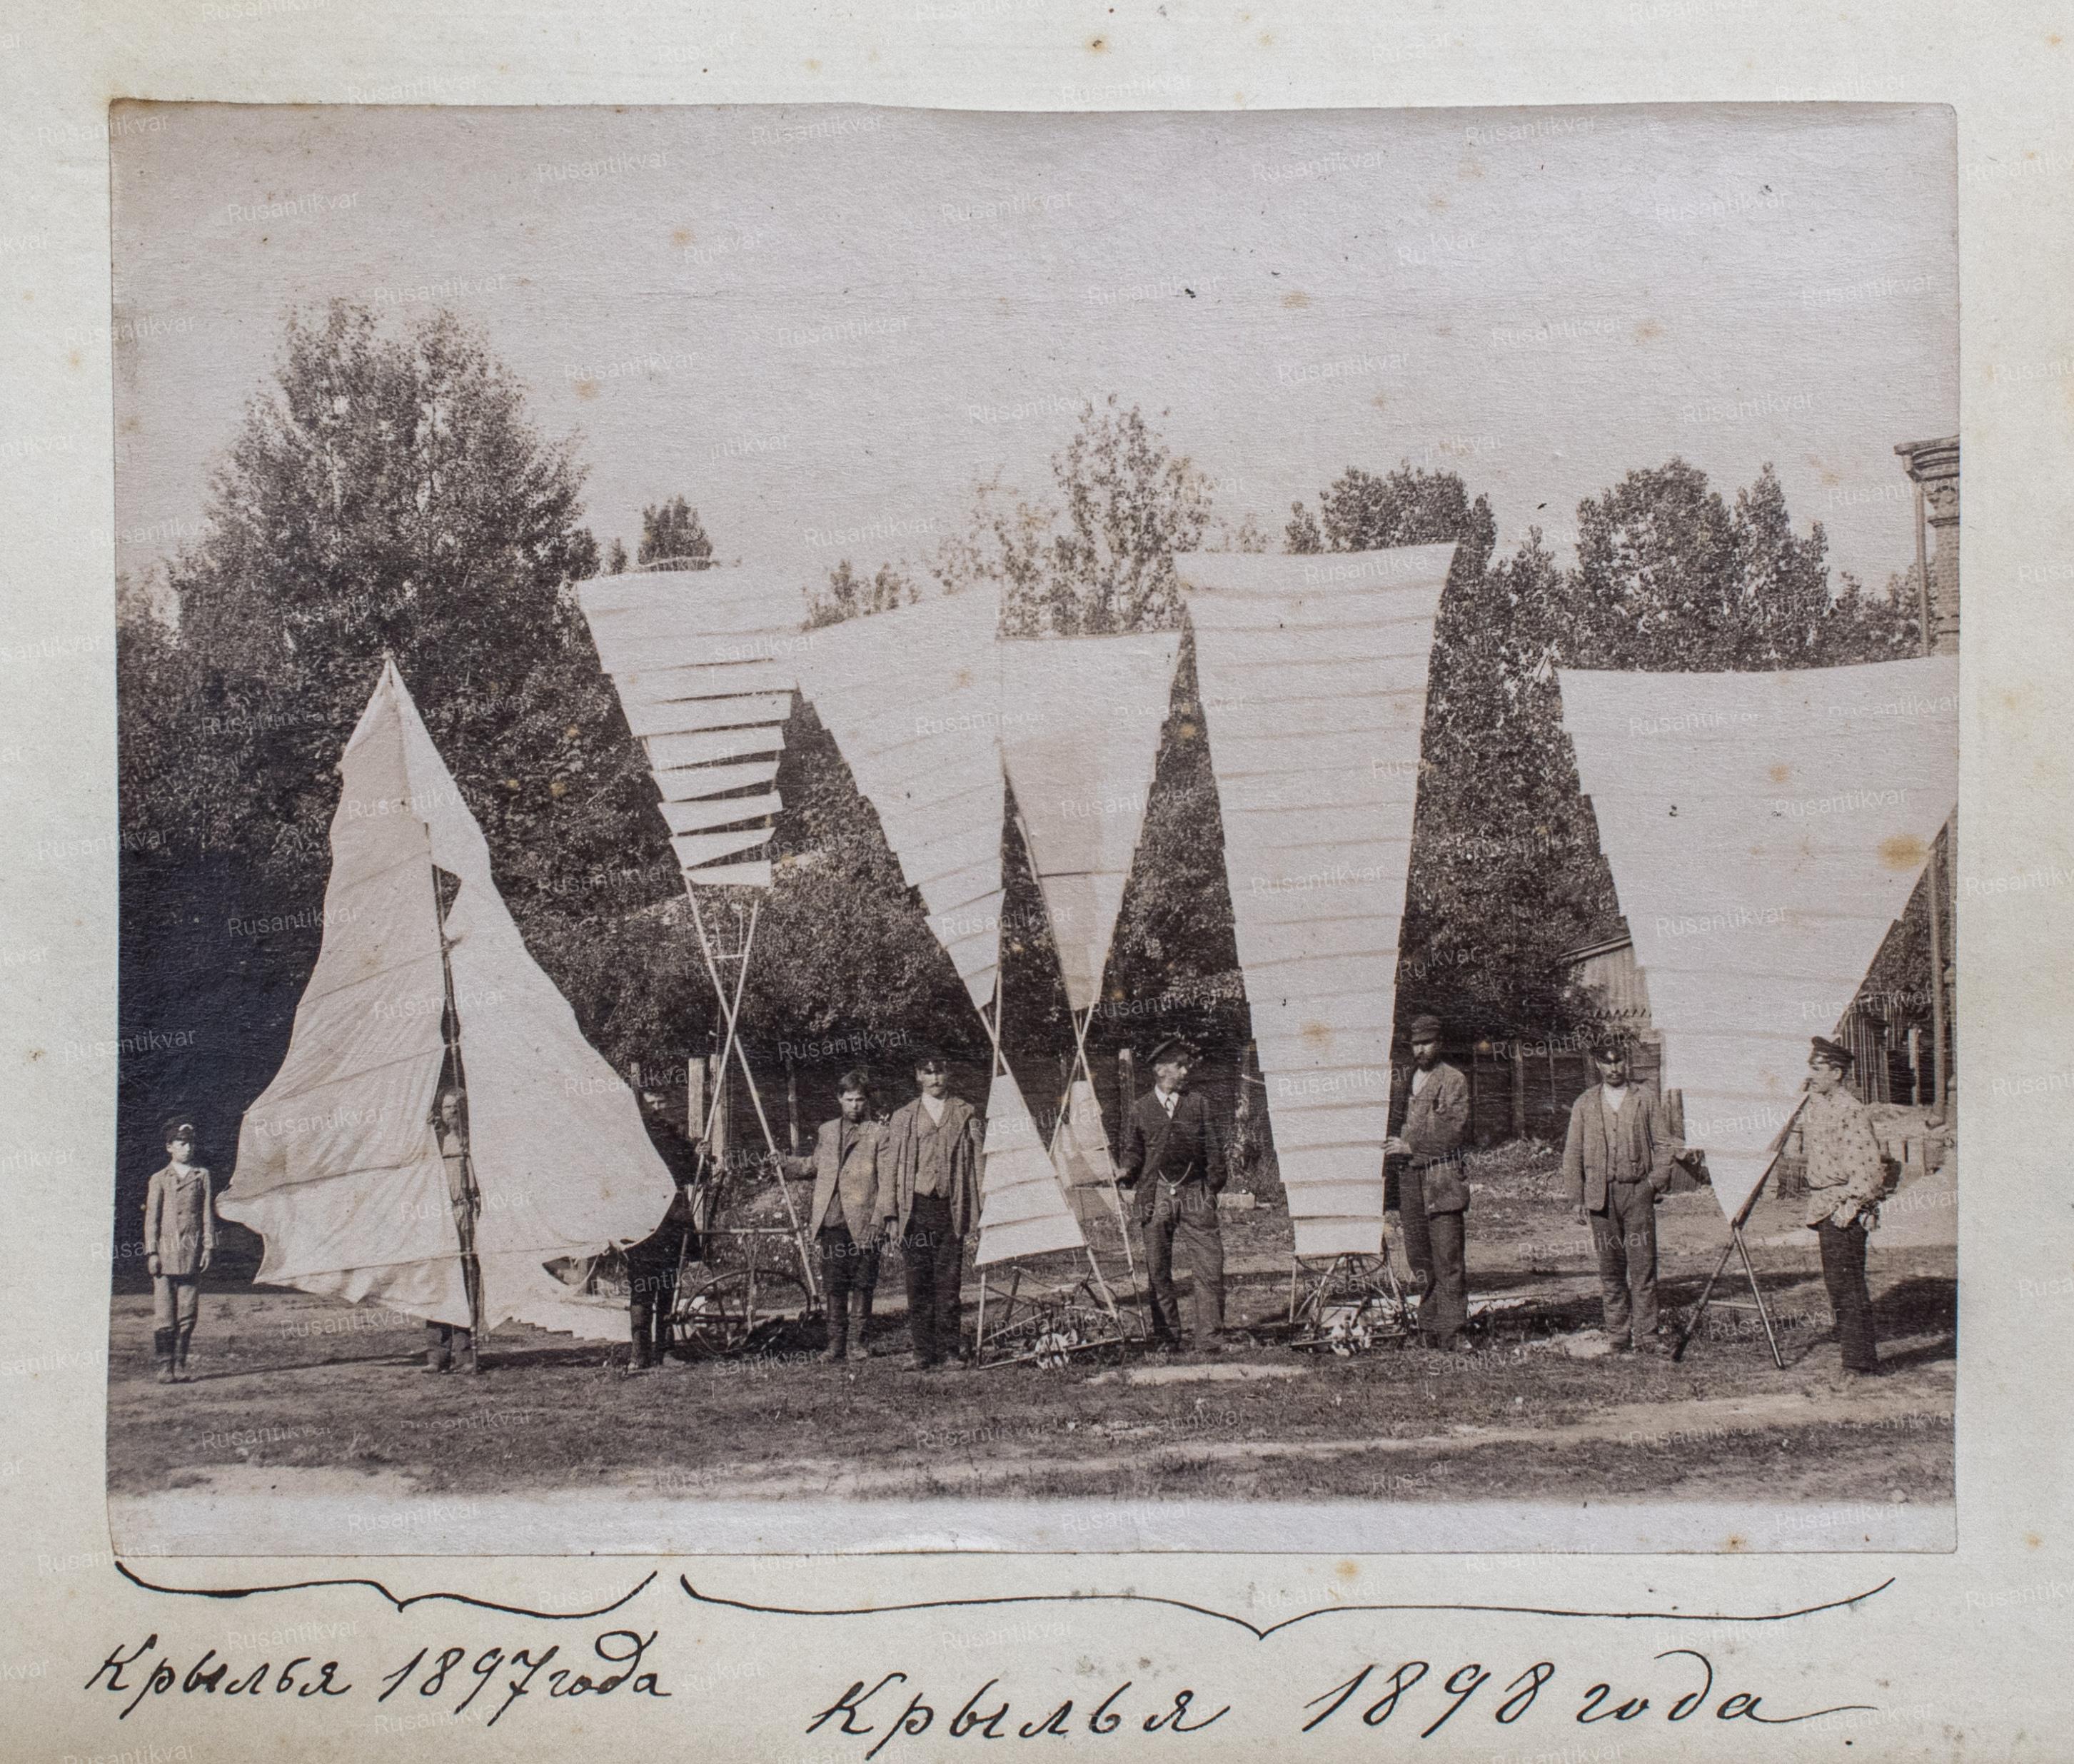 Крылья 1897 года
Крылья 1898 года
Rusantikvar